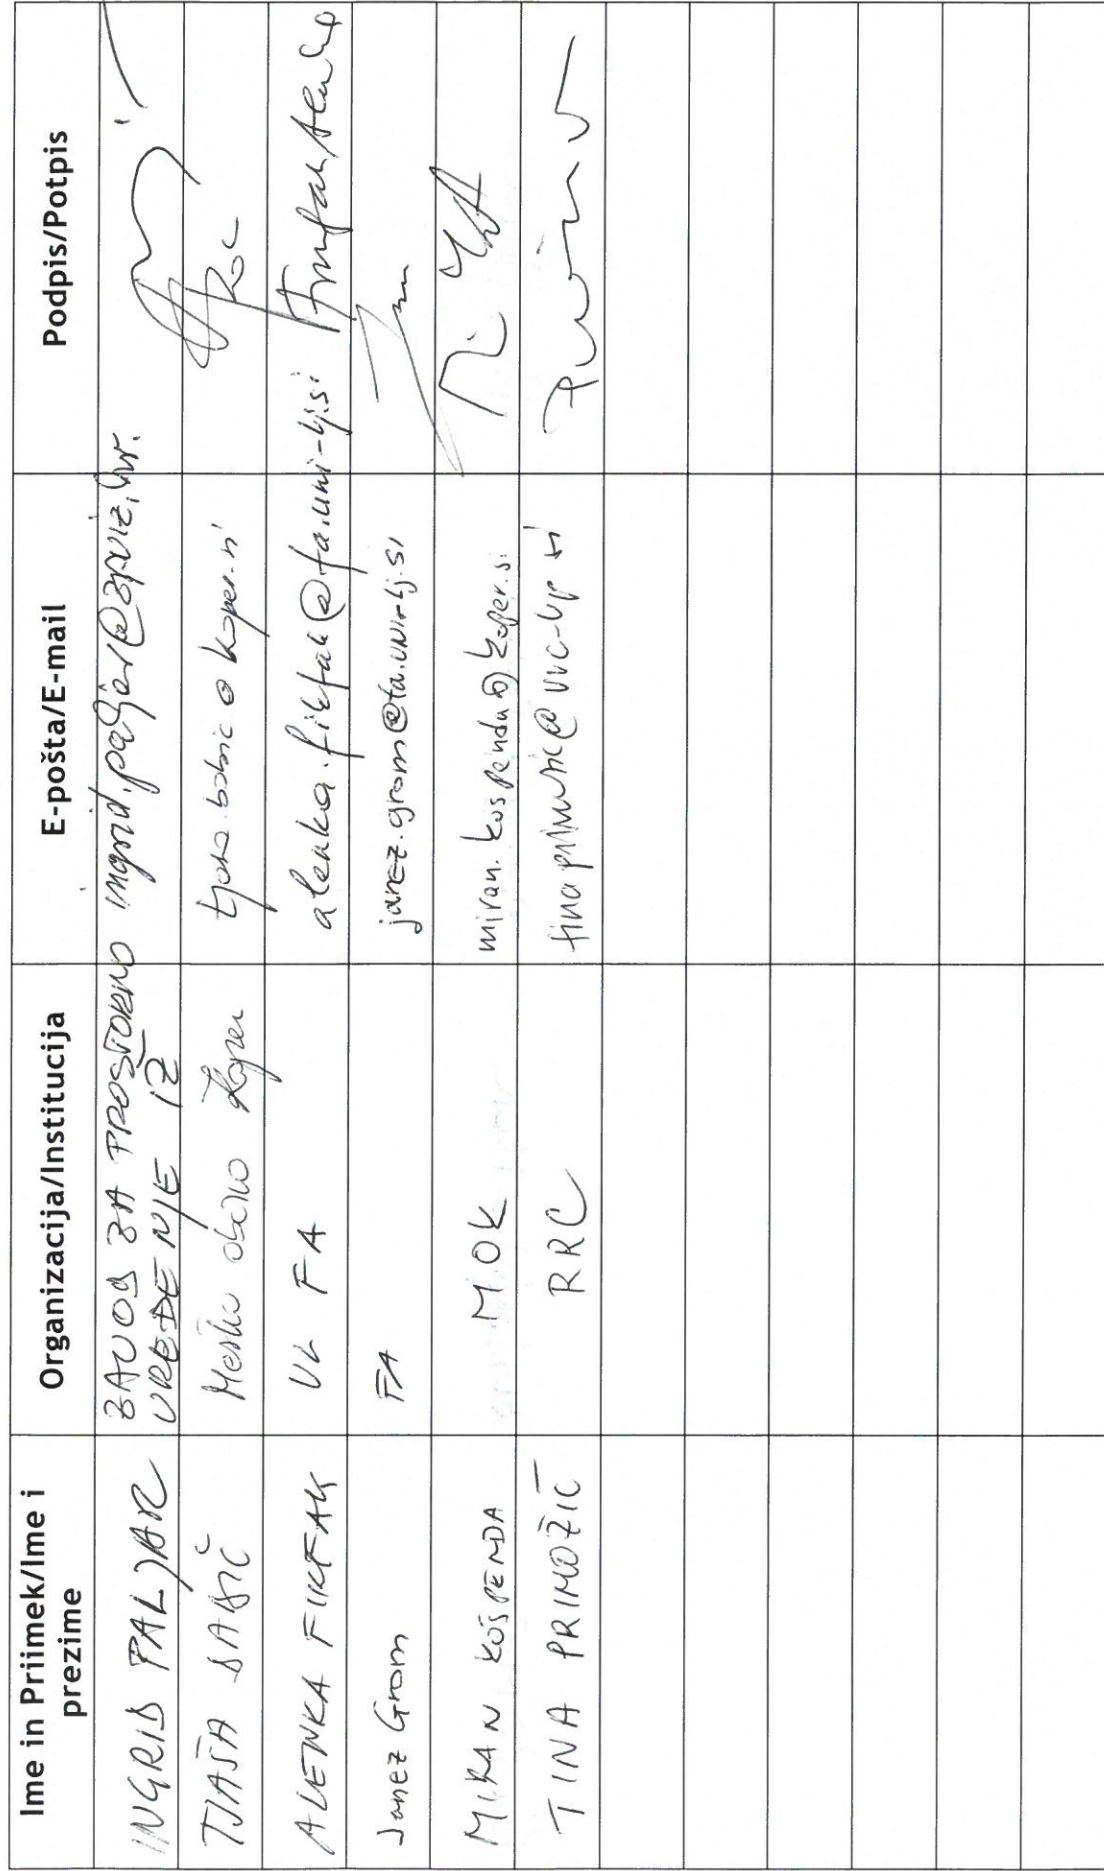 Ime in Priimek/Ime i prezime Organizacija/Institucija E-pošta/E-mail Podpis/Potpis
INGRID PALJAR ZAVOD ZA PROSTORNO ingrid.paljar@zpuiz.hr.
UREĐENJE IZ
TJAŠA BABIČ Mestna občina Koper tjasa.babic@koper.si
ALENKA FIKFAK UL FA alenka.fikfak@fa.uni-lj.si Fikfak Alenka
Janez Grom FA janez.grom@fa.uni-lj.si
MIRAN KOŠPENDA MOK miran.kospenda@koper.si
TINA PRIMOŽIČ RRC